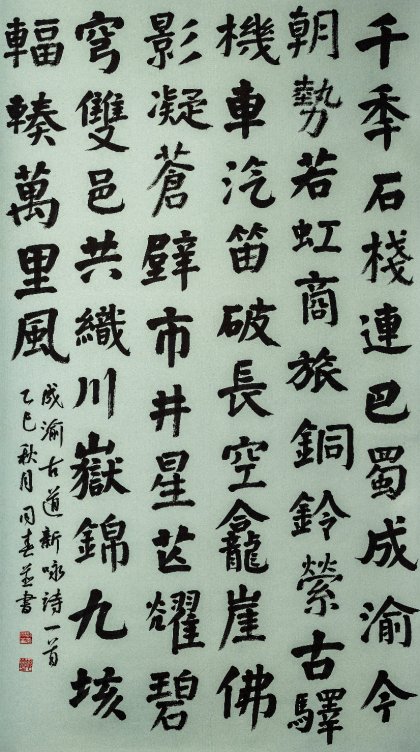 千秊石棧連巴蜀成渝今
朝勢若虹商旅銅鈴縈古驛
機車汽笛破長空龕崖佛
影凝蒼壁市井星芒耀碧
穹雙邑共織川嶽錦九垓
輻輳萬里風
成渝古道新咏詩一首
乙巳秋月同春並書